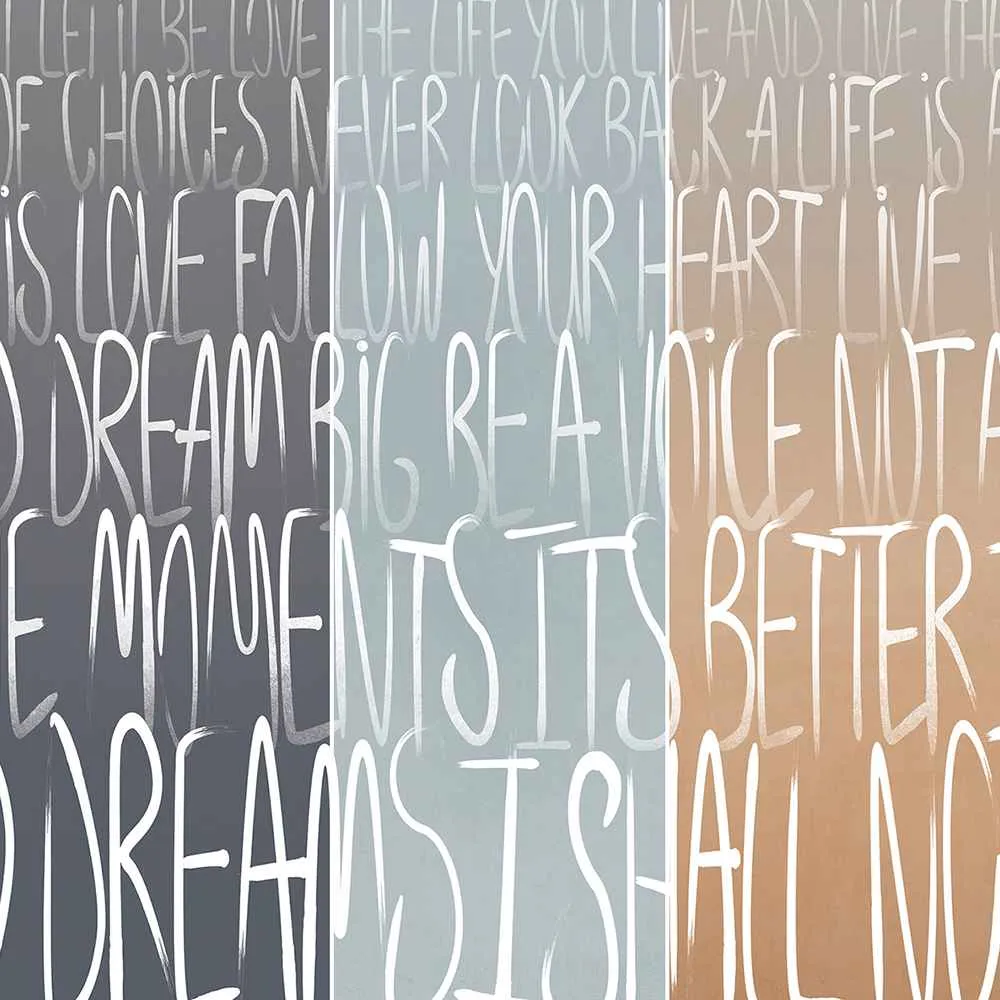 LET IT BE LOVE THE LIFE YOU LOVE AND LIVE THE
OF CHOICES NEVER LOOK BACK A LIFE IS A
IS LOVE FOLLOW YOUR HEART LIVE
D DREAM BIG BE A VOICE NOT A
E MOMENTS ITS BETTER T
D DREAMS I SHALL NO